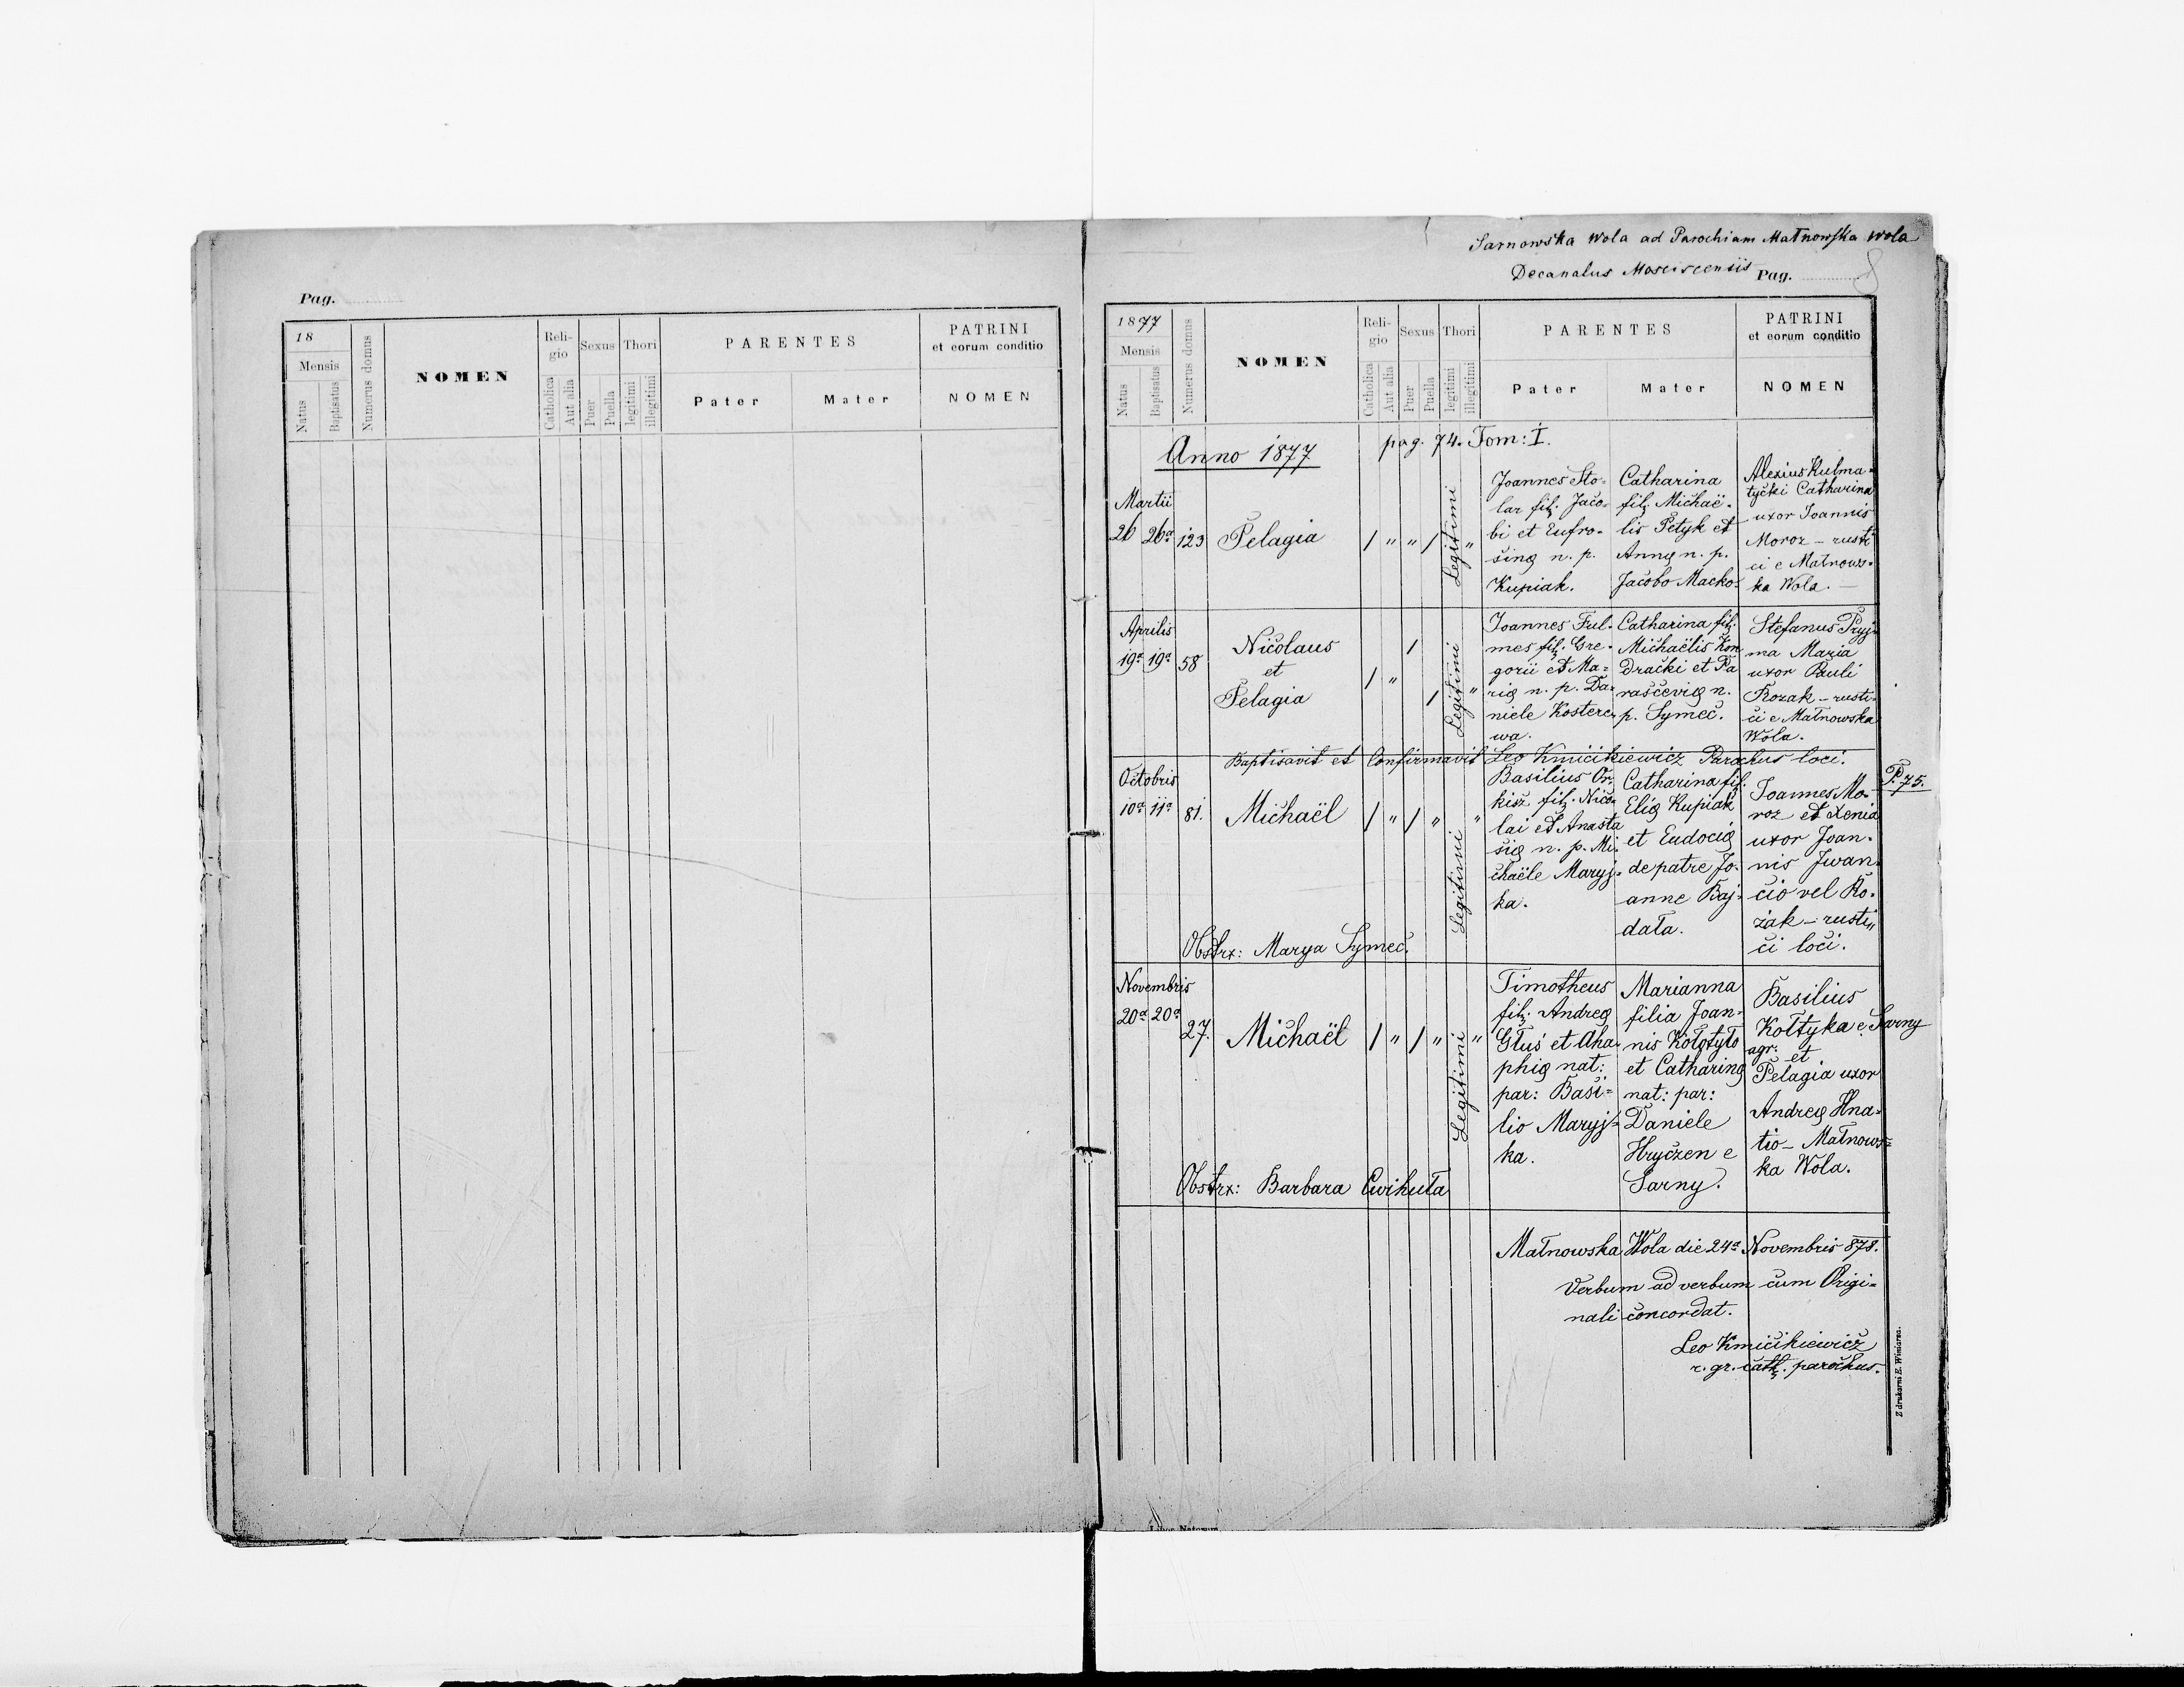 Pag.
18
Mensis
Natus
Baptisatus
Numerus domus
NOMEN
Reli-
gio
Catholica
Aut alia
Sexus
Puer
Puella
Thori
legitimi
illegitimi
PARENTES
Pater
Mater
PATRINI
et eorum conditio
NOMEN
Sarnowska Wola ad Parochiam Małnowska Wola
Decanatus Mosciscensis Pag. 8
1877
Mensis
Natus
Baptisatus
Numerus domus
NOMEN
Reli-
gio
Catholica
Aut alia
Sexus
Puer
Puella
Thori
legitimi
illegitimi
PARENTES
Pater
Mater
PATRINI
et eorum conditio
NOMEN
Anno 1877
pag. 74. Tom: I.
Martii
26 26a 123 Pelagia / " " / Legitimi "
Joannes Sto-
lar fil. Jaco-
bi et Eufro-
sinę n. p.
Kupiak.
Catharina
fil. Michaë-
lis Petyk et
Annę n. p.
Jacobo Macko-
Alexius Kulma-
tycki Catharina
uxor Joannis
Moroz - rusti
ci e Małnows-
ka Wola. -
Aprilis
19a 19a 58
Nicolaus
et
Pelagia
/ " / / Legitimi "
Joannes Ful-
mes fil. Gre-
gorii et Ma-
rię n. p. Da-
niele Kostere-
wa.
Catharina fil.
Michaëlis Kon
dracki et Pa
rascevię n.
p. Symec.
Stefanus Pryj-
ma Maria
uxor Pauli
Kozak - rusti-
ci e Małnowska
Wola.
Baptisavit et Confirmavit Leo Kmicikiewicz Parochus loci.
P. 75.
Octobris
10a 11a 81. Michaël / " / " Legitimi "
Basilius Or-
kisz fil. Nico-
lai et Anasta
się n. p. Mi-
chaële Maryj-
ka.
Catharina fil.
Elię Kupiak
et Eudocię
de patre Jo-
anne Baj-
data.
Joannes Mo-
roz et Xenia
uxor Joan-
nis Iwan-
cio vel Ko-
zak - rusti"
ci loci.
Obstrx: Marya Symec.
Novembris
20a 20a 27. Michaël / " / " Legitimi "
Timotheus
fil. Andreę
Głuś et Aha-
phię nat:
par: Basi=
lio Maryj=
ka.
Marianna
filia Joan=
nis Kołotyło
et Catharinę
nat: par:
Daniele
Hryczen e
Sarny.
Basilius
Kołtyka e Sarny
agr: et
Pelagia uxor
Andreę Hna-
tio - Małnows=
ka Wola.
Obstrx: Barbara Cwikuła
Małnowska Wola die 24a Novembris 878.
Verbum ad verbum cum Origi=
nali concordat.
Leo Kmicikiewicz
r. gr. cath. parochus.
Z drukarni E. Winiarza.
Liber Natorum